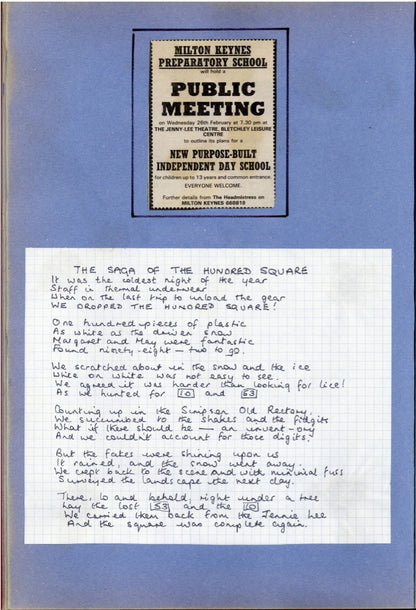 MILTON KEYNES
PREPARATORY SCHOOL
will hold a
PUBLIC
MEETING
on Wednesday 26th February at 7.30 pm at
THE JENNY-LEE THEATRE, BLETCHLEY LEISURE
CENTRE
to outline its plans for a
NEW PURPOSE-BUILT
INDEPENDENT DAY SCHOOL
for children up to 13 years and common entrance.
EVERYONE WELCOME.
Further details from The Headmistress on
MILTON KEYNES 668818
THE SAGA OF THE HUNDRED SQUARE
It was the coldest night of the year
Staff in thermal underwear
When on the last trip to unload the gear
WE DROPPED THE HUNDRED SQUARE!
One hundred pieces of plastic
As white as the driven snow
Margaret and May were fantastic
Found ninety-eight — two to go.
We scratched about in the snow and the ice
White on white was not easy to see.
We agreed it was harder than looking for lice!
As we hunted for 10 and 53
Counting up in the Simpson Old Rectory,
We succumbed to the shakes and the fidgits
What if there should be — an
And we couldn't account for those digits.
But the fates were shining upon us
It rained, and the snow went away.
We crept back to the scene and with minimal fuss
Surveyed the landscape the next day.
There, lo and behold, right under a tree
Lay the lost 53 and the 10
We carried them back from the Jennie Lee
And the square was complete again.